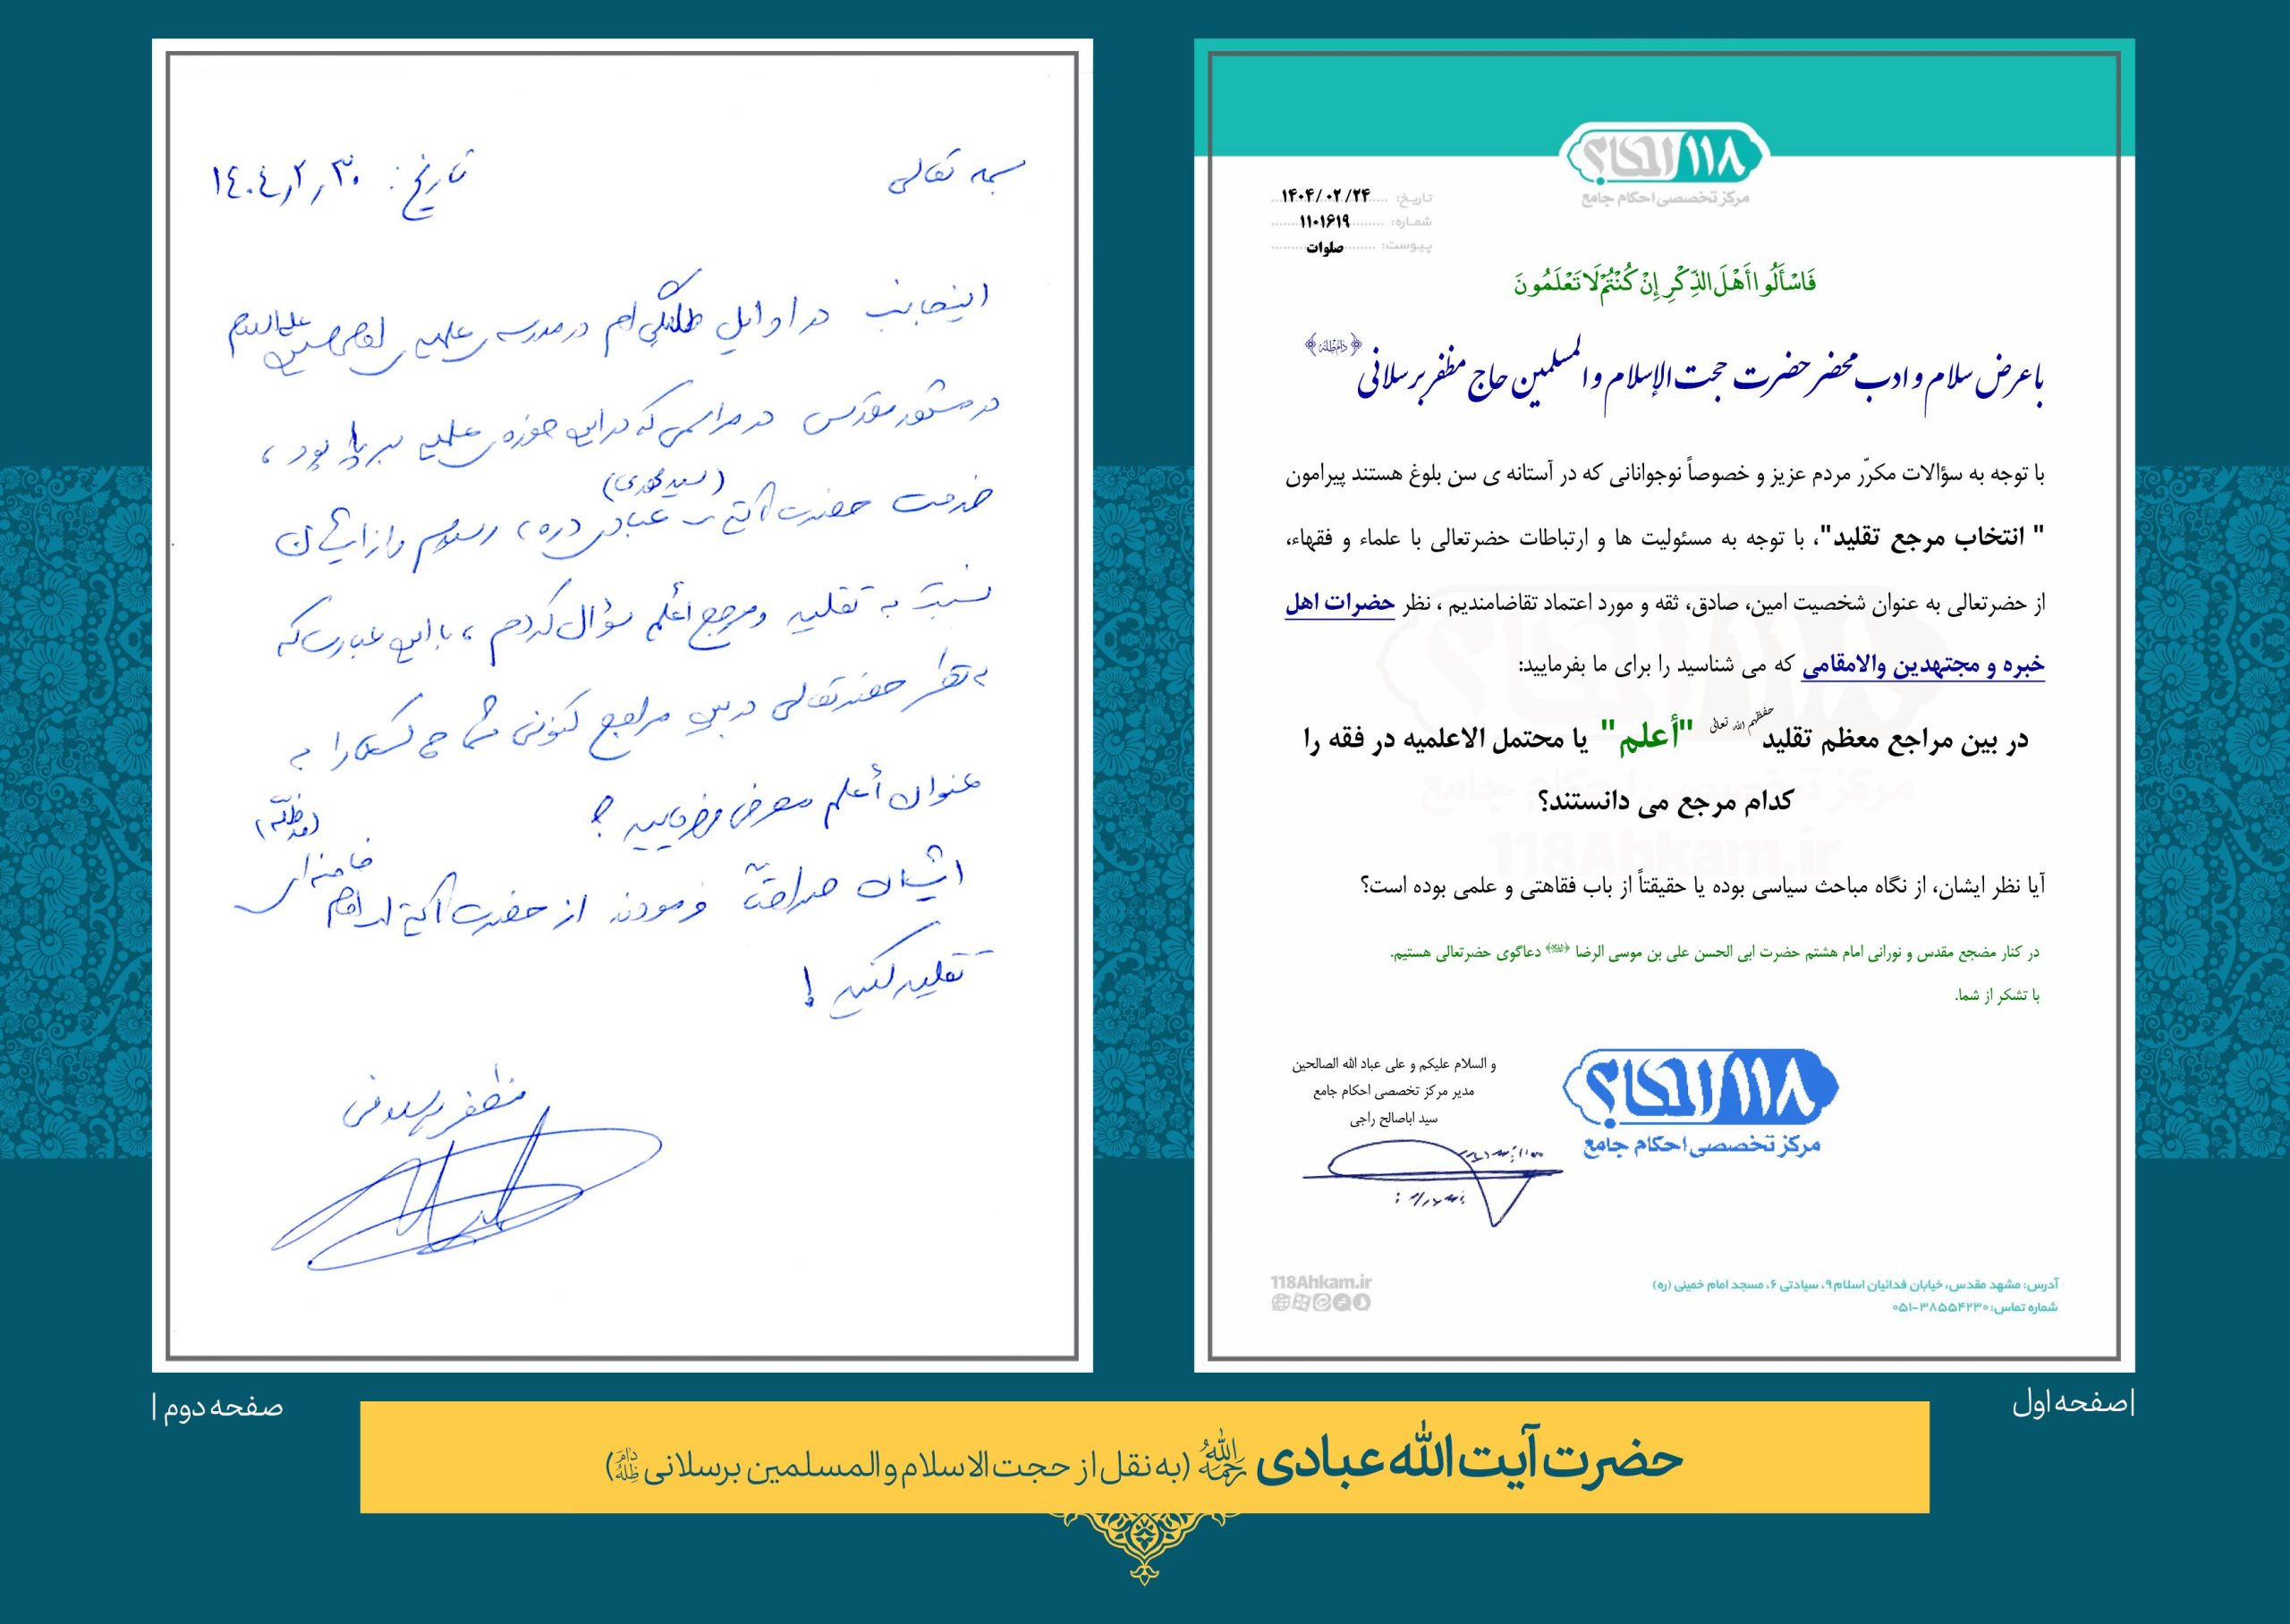 ۱۱۸ احکام
مرکز تخصصی احکام جامع
تاریخ: ۱۴۰۴/۰۲/۲۴
شماره: ۱۱۰۱۶۱۹
پیوست: صلوات
فَاسْأَلُوا أَهْلَ الذِّكْرِ إِنْ كُنْتُمْ لَا تَعْلَمُونَ
با عرض سلام و ادب محضر حضرت حجت الإسلام و المسلمین حاج مظفر برسلانی ﴿دامَ ظِلُّهُ﴾
با توجه به سؤالات مکرّر مردم عزیز و خصوصاً نوجوانانی که در آستانه ی سن بلوغ هستند پیرامون
" انتخاب مرجع تقلید"، با توجه به مسئولیت ها و ارتباطات حضرتعالی با علماء و فقهاء،
از حضرتعالی به عنوان شخصیت امین، صادق، ثقه و مورد اعتماد تقاضامندیم ، نظر حضرات اهل
خبره و مجتهدین والامقامی که می شناسید را برای ما بفرمایید:
در بین مراجع معظم تقلید حفظهم الله تعالی "أعلم" یا محتمل الاعلمیه در فقه را
کدام مرجع می دانستند؟
آیا نظر ایشان، از نگاه مباحث سیاسی بوده یا حقیقتاً از باب فقاهتی و علمی بوده است؟
در کنار مضجع مقدس و نورانی امام هشتم حضرت ابی الحسن علی بن موسی الرضا دعاگوی حضرتعالی هستیم.
با تشکر از شما.
و السلام علیکم و علی عباد الله الصالحین
مدیر مرکز تخصصی احکام جامع
سید اباصالح راجی
۱۱۸ احکام
مرکز تخصصی احکام جامع
مرکز تخصصی احکام جامع
118Ahkam.ir
آدرس: مشهد مقدس، خیابان فدائیان اسلام ۹، سیادتی ۶، مسجد امام خمینی (ره)
شماره تماس: ۳۸۵۵۴۲۳۰-۰۵۱
118Ahkam.ir
صفحه اول
بسمه تعالی
تاریخ: ۱٤۰٤/۲/۳۰
اینجانب در اوایل طلبگی ام در مدرسه ی علمیه ی امام حسین علیه السلام
در مشهد مقدس در مراسمی که در این حوزه ی علمیه برپا بود ،
خدمت حضرت آیة ... عبادی (سید مهدی) (ره) رسیدم و از ایشان
نسبت به تقلید و مرجع أعلم سؤال کردم ، با این عبارت که
به نظر حضرتعالی در بین مراجع کنونی شما چه کسی را به
عنوان أعلم معرفی میفرمایید ؟
ایشان صراحتاً فرمودند از حضرت آیة ا... امام خامنه ای (مدظلّه)
تقلید کنید !
مظفر برسلانی
صفحه دوم
حضرت آیت الله عبادی رحمه الله (به نقل از حجت الاسلام والمسلمین برسلانی دام ظله)